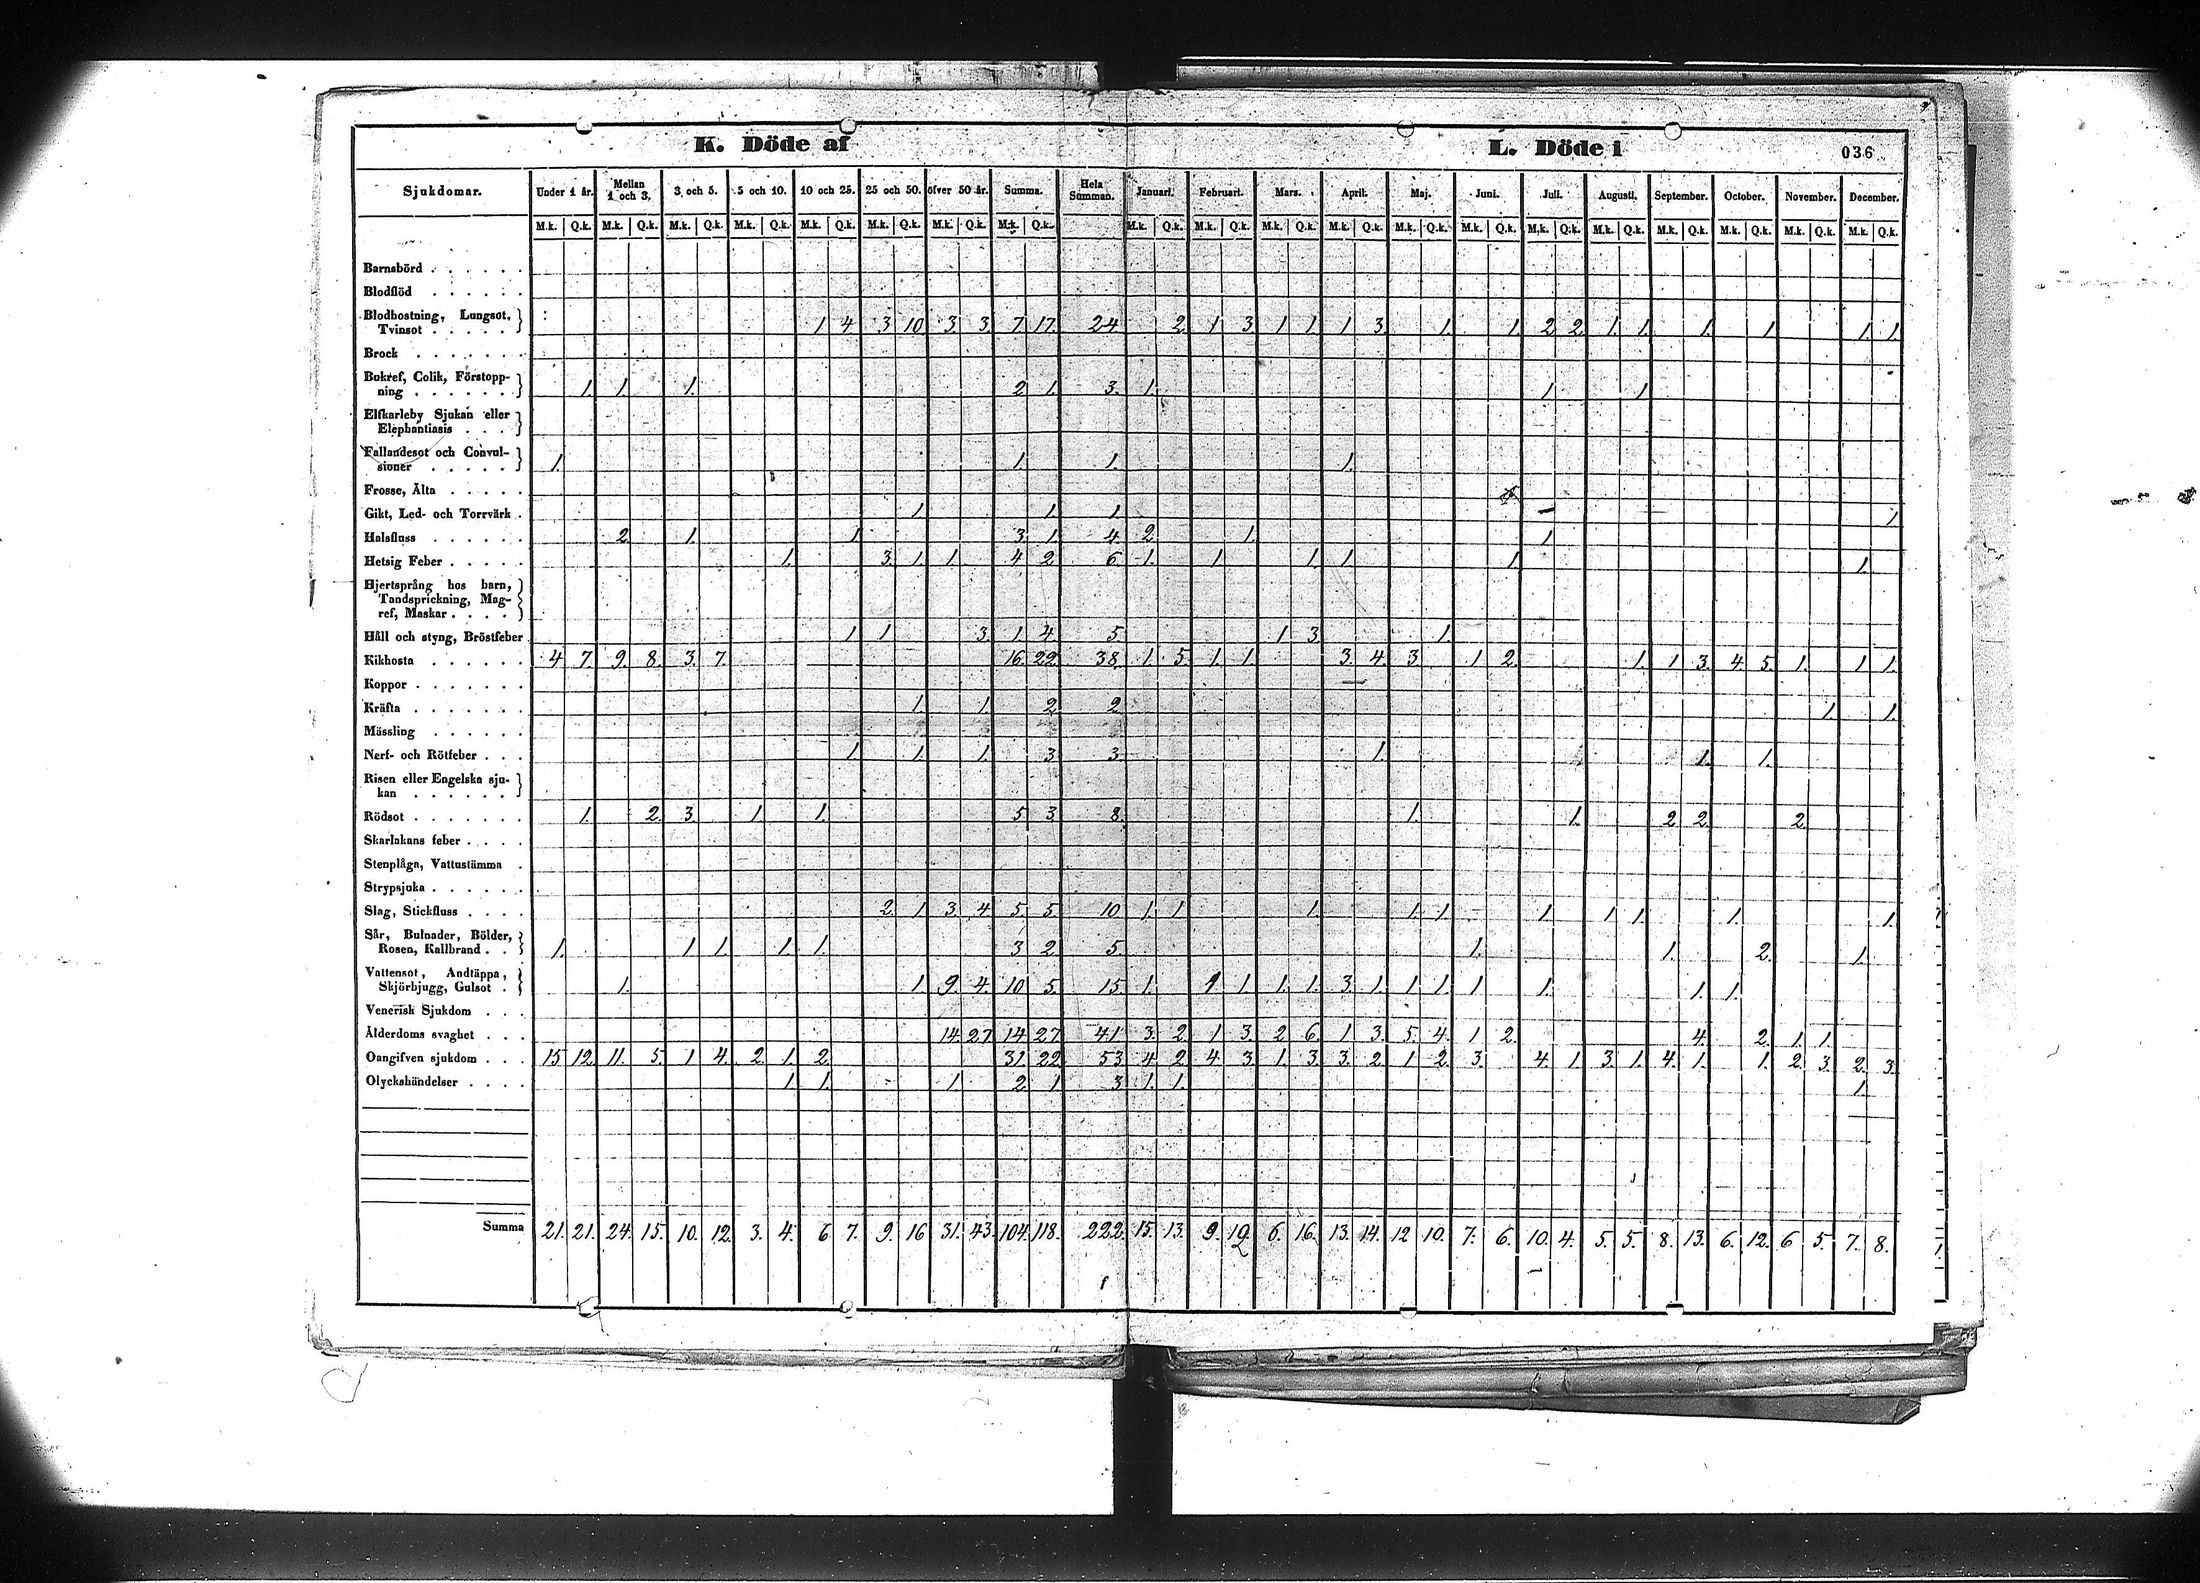 K. Döde af L. Döde i 036
Sjukdomar. Under 1 år. Mellan 1 och 3. 3 och 5. 5 och 10. 10 och 25. 25 och 50. öfver 50 år. Summa. Hela Summan. Januari. Februari. Mars. April. Maj. Juni. Juli. Augusti. September. October. November. December.
M.k. Q.k. M.k. Q.k. M.k. Q.k. M.k. Q.k. M.k. Q.k. M.k. Q.k. M.k. Q.k. M.k. Q.k. M.k. Q.k. M.k. Q.k. M.k. Q.k. M.k. Q.k. M.k. Q.k. M.k. Q.k. M.k. Q.k. M.k. Q.k. M.k. Q.k. M.k. Q.k. M.k. Q.k. M.k. Q.k.
Barnsbörd . . . . . .
Blodflöd . . . . . .
Blodhostning, Lungsot,
Tvinsot . . . . . 1 4 3 10 3 3 7 17 24 2 1 3 1 1 1 3 1 1 2 2 1 1 1 1 1 1
Brock . . . . . . .
Bukref, Colik, Förstopp-
ning . . . . . . 1 1 1 2 1 3 1 1 1
Elfkarleby Sjukan eller
Elephantiasis . . .
Fallandesot och Convul-
sioner . . . . . 1 1 1 1
Frosse, Älta . . . . .
Gikt, Led- och Torrvärk . 1 1 1 1
Halsfluss . . . . . . 2 1 1 3 1 4 2 1 1
Hetsig Feber . . . . . 1 3 1 1 4 2 6 1 1 1 1 1 1
Hjertsprång hos barn,
Tandsprickning, Mag-
ref, Maskar . . . .
Håll och styng, Bröstfeber 1 1 3 1 4 5 1 3 1
Kikhosta . . . . . . 4 7 9 8 3 7 16 22 38 1 5 1 1 3 4 3 1 2 1 1 3 4 5 1 1 1
Koppor . . . . . . .
Kräfta . . . . . . . 1 1 2 2 1 1
Mässling . . . . . .
Nerf- och Rötfeber . . . 1 1 1 3 3 1 1 1
Risen eller Engelska sju-
kan . . . . . .
Rödsot . . . . . . . 1 2 3 1 1 5 3 8 1 1 2 2 2
Skarlakans feber . . . .
Stenplåga, Vattustämma .
Strypsjuka . . . . . .
Slag, Stickfluss . . . . 2 1 3 4 5 5 10 1 1 1 1 1 1 1 1 1 1
Sår, Bulnader, Bölder,
Rosen, Kallbrand . . 1 1 1 1 1 3 2 5 1 1 2 1
Vattensot, Andtäppa,
Skjörbjugg, Gulsot . 1 1 9 4 10 5 15 1 1 1 1 3 1 1 1 1 1 1 1
Venerisk Sjukdom . . .
Ålderdoms svaghet . . . 14 27 14 27 41 3 2 1 3 2 6 1 3 5 4 1 2 4 2 1 1
Oangifven sjukdom . . . 15 12 11 5 1 4 2 1 2 31 22 53 4 2 4 3 1 3 3 2 1 2 3 4 1 3 1 4 1 1 2 3 2 3
Olyckshändelser . . . . 1 1 1 2 1 3 1 1 1
Summa 21. 21. 24. 15. 10. 12. 3. 4. 6. 7. 9. 16 31. 43. 104. 118. 222. 15. 13. 9. 6. 16. 13. 14. 12 10. 7. 6. 10. 4. 5. 5. 8. 13. 6. 12. 6 5. 7. 8.